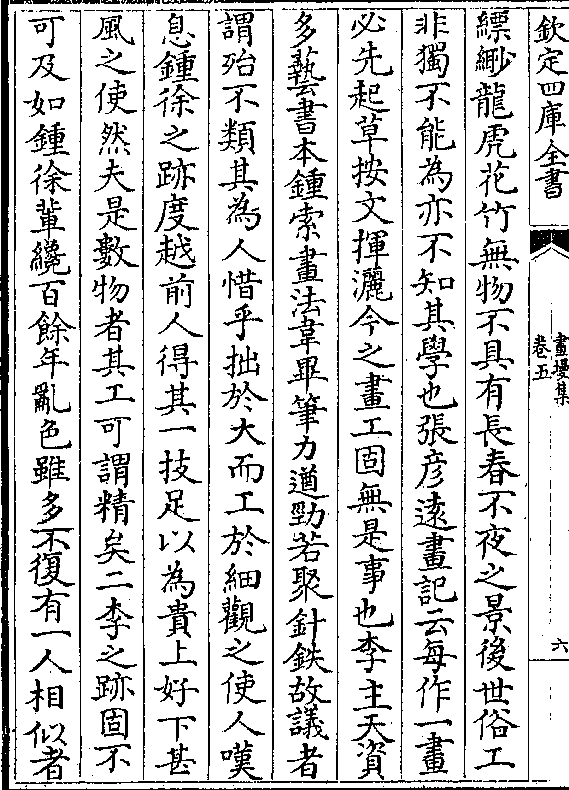 欽定四庫全書
畫墁集
卷五
六
縹緲龍虎花竹無物不具有長春不夜之景後世俗工
非獨不能為亦不知其學也張彦逺畫記云每作一畫
必先起草按文揮灑今之畫工固無是事也李主天資
多藝書本鍾索畫法韋畢筆力遒勁若聚針鉄故議者
謂殆不類其為人惜乎拙於大而工於細觀之使人嘆
息鍾徐之跡度越前人得其一技足以為貴上好下甚
風之使然夫是數物者其工可謂精矣二李之跡固不
可及如鍾徐輩纔百餘年亂色雖多不復有一人相似者